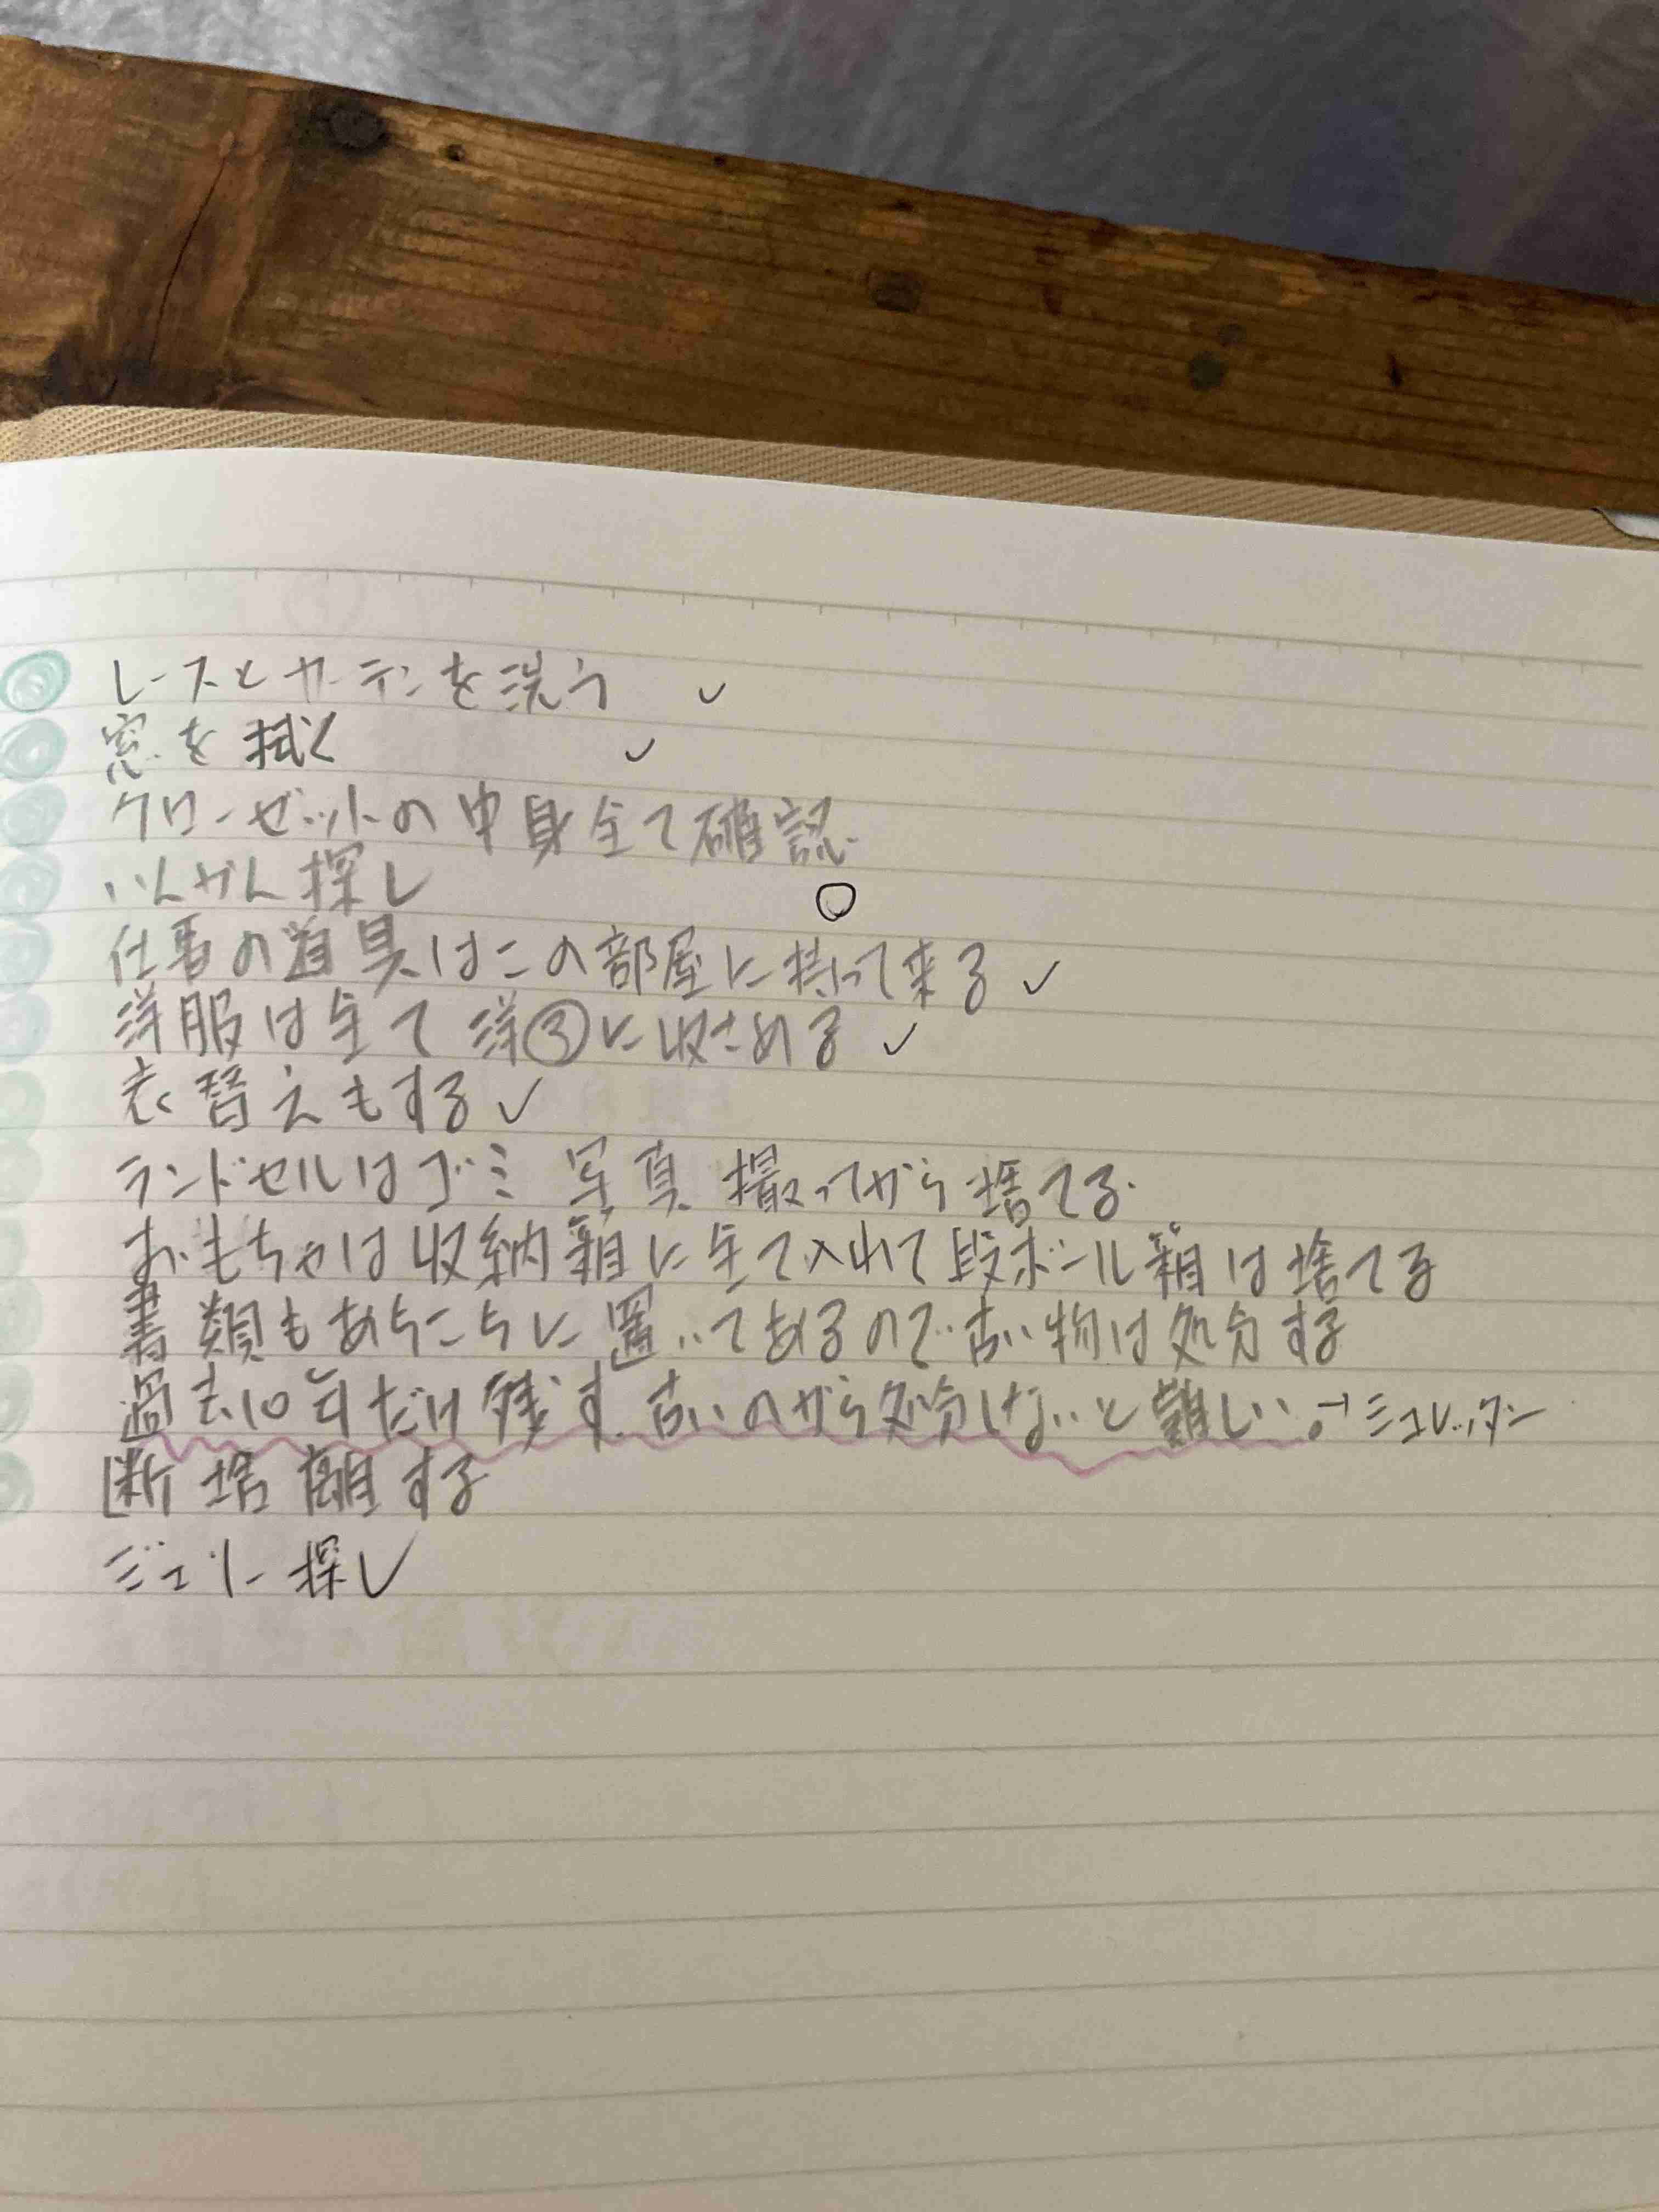 レースとカーテンを洗う ✓
窓を拭く ✓
クローゼットの中身全て確認
いんかん探し ○
仕事の道具はこの部屋に持って来る ✓
洋服は全て洋③に収さめる ✓
衣替えもする ✓
ランドセルはゴミ 写真撮ってから捨てる.
おもちゃは収納箱に全て入れて段ボール箱は捨てる
書類もあちこちに置いてあるので古い物は処分する
過去10年だけ残す. 古いのから処分しないと難しい。→シュレッダー
断捨離する
ジュエリー探し